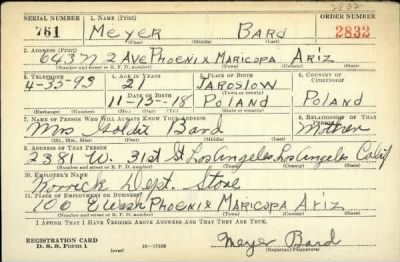 2832
SERIAL NUMBER 1. NAME (Print) ORDER NUMBER
761 Meyer Bard 2832
(First) (Middle) (Last)
2. ADDRESS (Print)
643 N 2 Ave Phoenix Maricopa Ariz
(Number and street or R. F. D. number) (Town) (County) (State)
3. TELEPHONE 4. AGE IN YEARS 5. PLACE OF BIRTH 6. COUNTRY OF CITIZENSHIP
4-35-93 21 Jaroslow
DATE OF BIRTH (Town or county)
11-13-18 Poland Poland
(Exchange) (Number) (Mo.) (Day) (Yr.) (State or country)
7. NAME OF PERSON WHO WILL ALWAYS KNOW YOUR ADDRESS 8. RELATIONSHIP OF THAT PERSON
Mrs Goldie Bard Mother
(Mr., Mrs., Miss) (First) (Middle) (Last)
9. ADDRESS OF THAT PERSON
2381 W. 31st St Los Angeles, Los Angeles Calif
(Number and street or R. F. D. number) (Town) (County) (State)
10. EMPLOYER'S NAME
Dept. Store
11. PLACE OF EMPLOYMENT OR BUSINESS
100 E Wash Phoenix Maricopa Ariz
(Number and street or R. F. D. number) (Town) (County) (State)
I AFFIRM THAT I HAVE VERIFIED ABOVE ANSWERS AND THAT THEY ARE TRUE.
REGISTRATION CARD
D. S. S. Form 1 (over) 16-17105 Meyer Bard
(Registrant's signature)